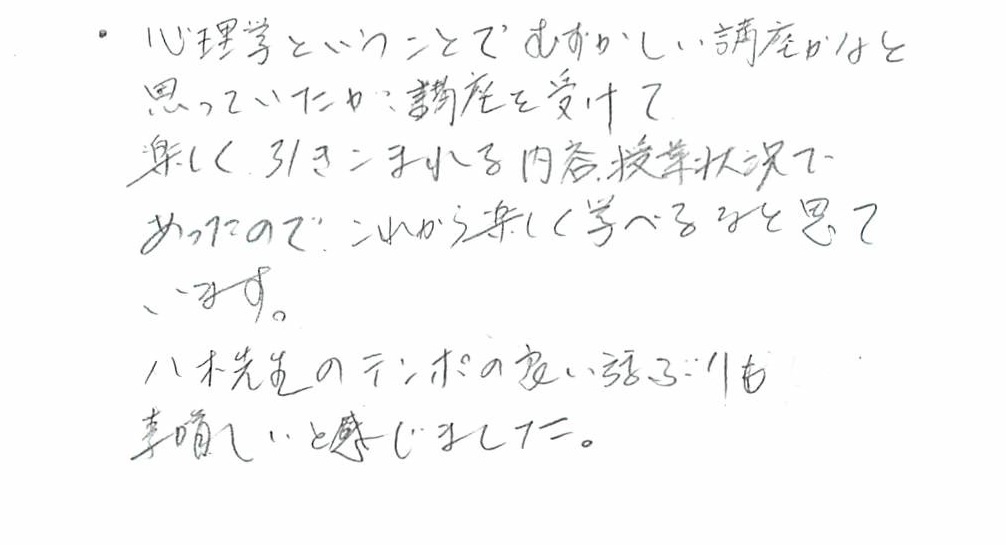 ・心理学ということでむずかしい講座かなと
思っていたが、講座を受けて
楽しく引きこまれる内容、授業状況で
あったので、これから楽しく学べるなと思て
います。
八木先生のテンポの良い話ぶりも
素晴しいと感じました。